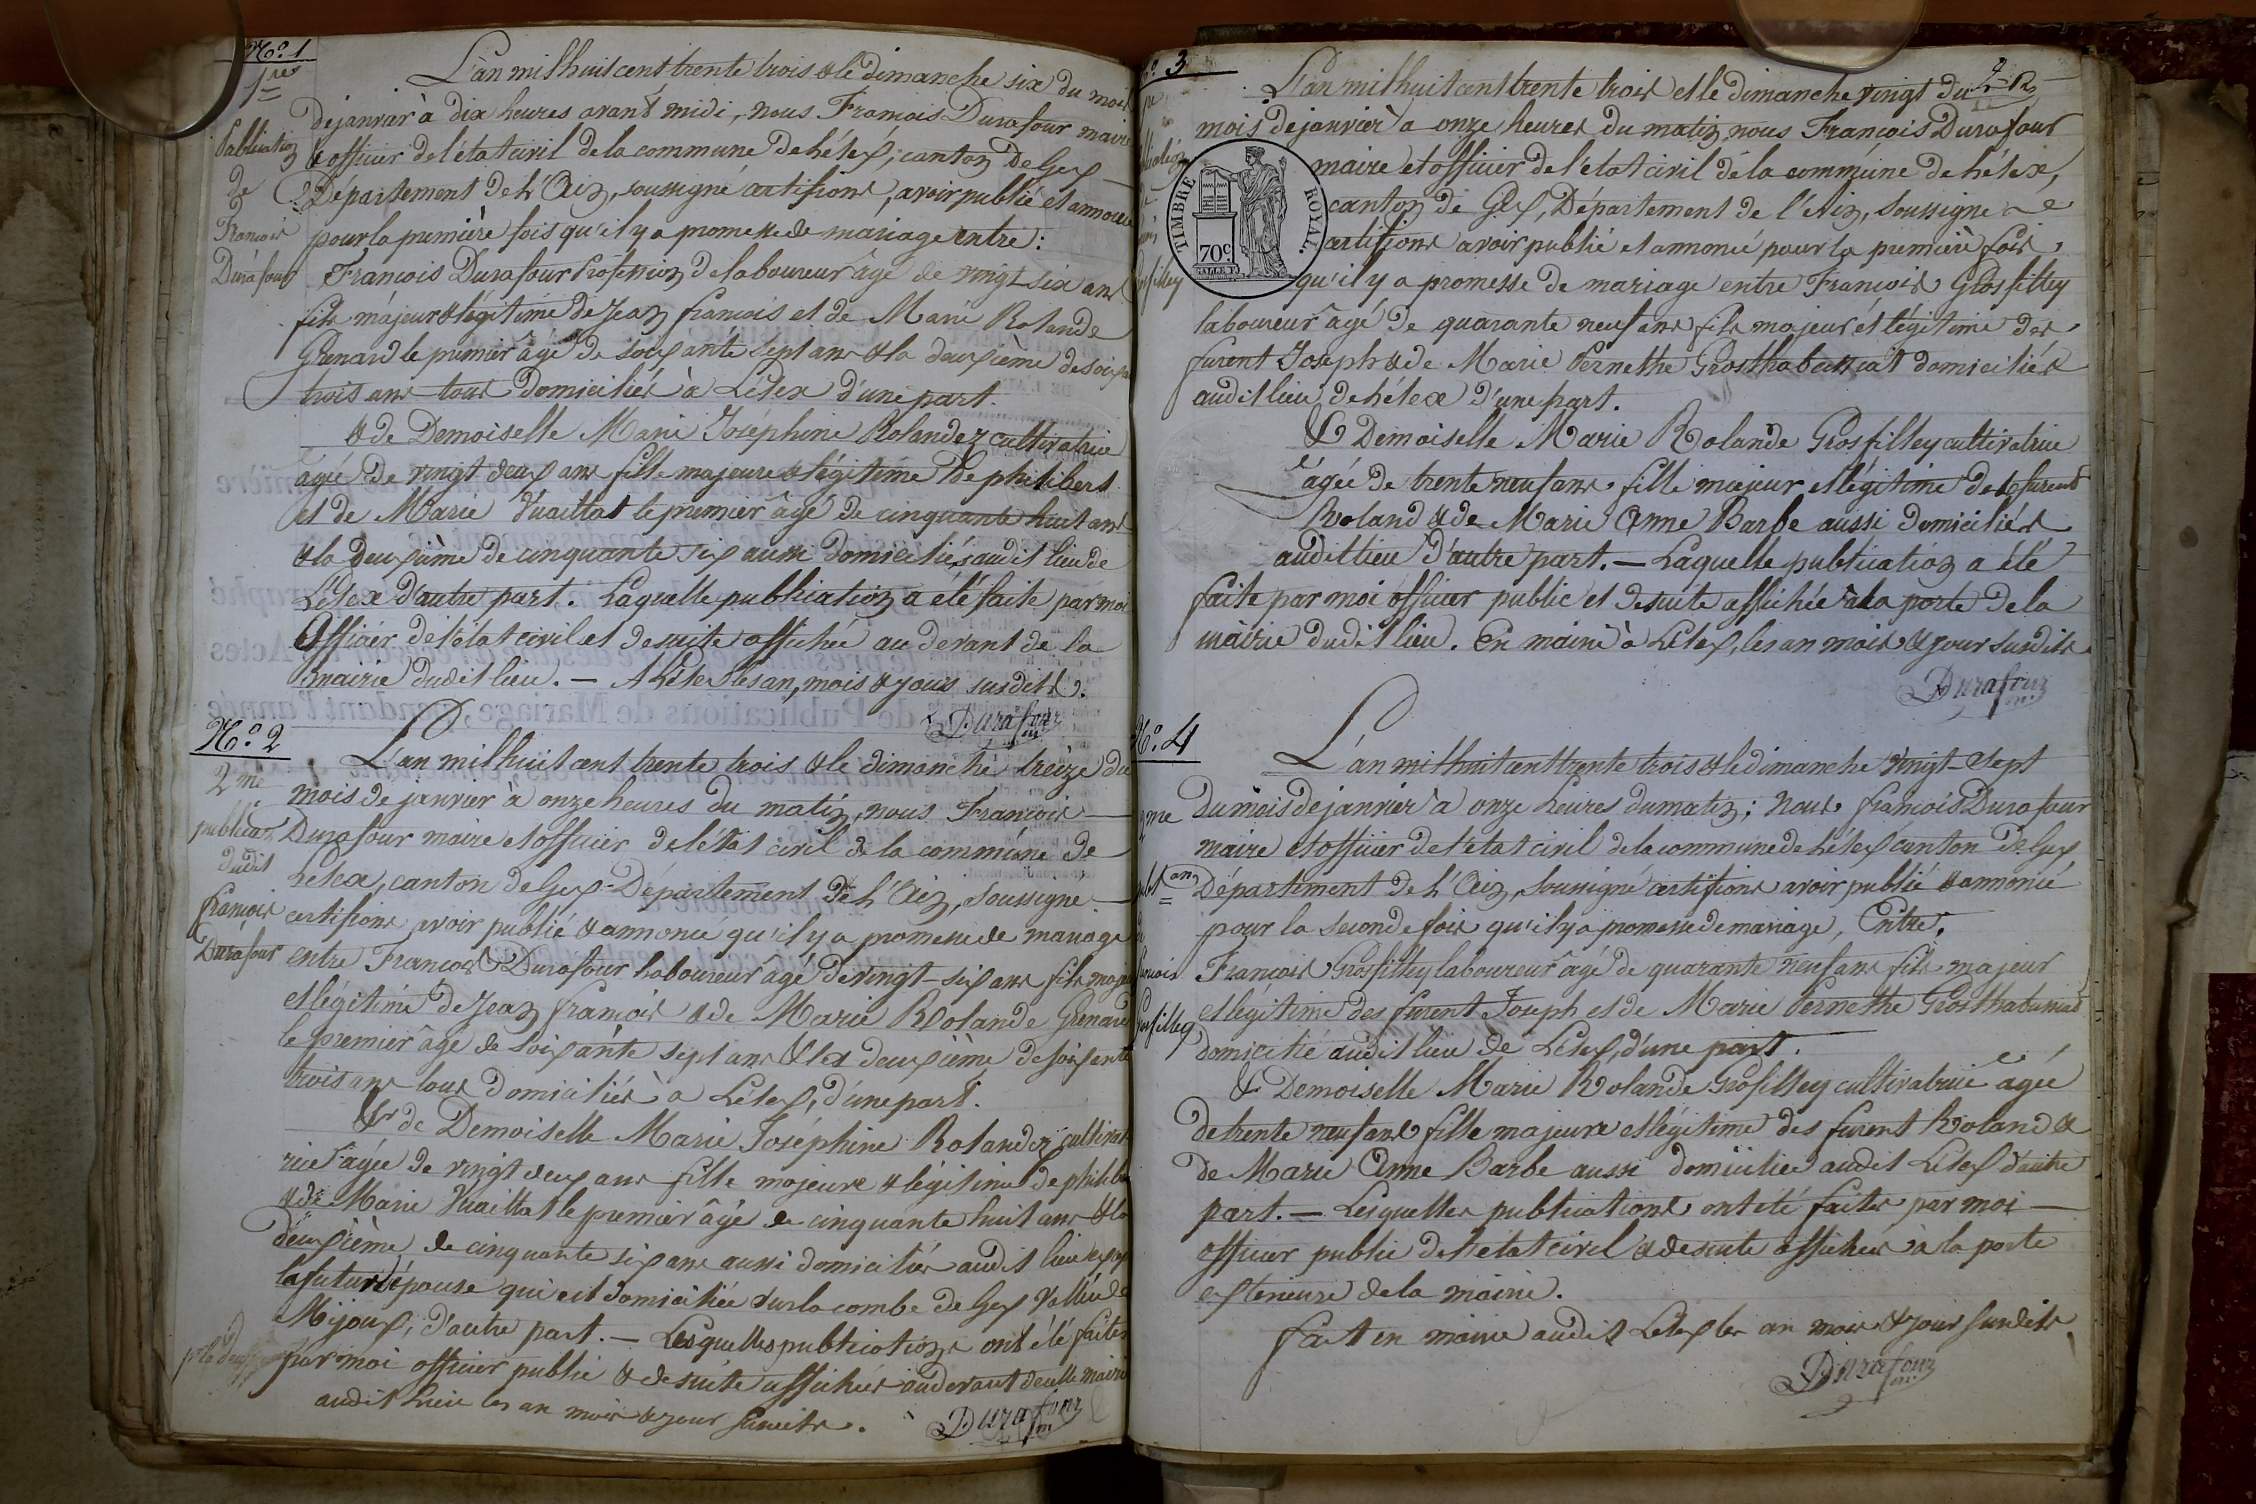 No. 1
1re
Publication
de
François
Durafour
L'an mil huit cent trente trois & le dimanche six du mois
de janvier à dix heures avant midi, nous François Durafour maire
& officier de l'état civil de la commune de Lélex, canton de Gex
Département de L'Ain, soussigné certifions, avoir publié et annoncé
pour la première fois qu'il y a promesse de mariage entre :
François Durafour Profession de laboureur âgé de vingt six ans
fils majeur & légitime de Jean françois et de Marie Rolande
Grenard le premier âgé de soixante sept ans & la deuxième de soixante
trois ans tous domiciliés à Lélex d'une part.
& de Demoiselle Marie Joséphine Rolandez cultivatrice
agée de vingt deux ans fille majeure & légitime de philibert
et de Marie Vuaillat le premier âgé de cinquante huit ans
& la deuxième de cinquante six aussi domiciliés audit lieu de
Lélex d'autre part. Laquelle publication a été faite par moi
Officier de l'état civil et de suite affichée au devant de la
mairie dudit lieu. — A Lélex les an, mois & jours susdits.
Durafour
No. 2
2me
publication
dudit
françois
Durafour
L'an mil huit cent trente trois & le dimanche treize du
mois de janvier à onze heures du matin, nous François
Durafour maire et officier de l'état civil de la commune de
Lélex, canton de Gex Département de L'Ain, soussigné
certifions avoir publié & annoncé qu'il y a promesse de mariage
entre François Durafour laboureur âgé de vingt-six ans fils majeur
et légitime de Jean françois & de Marie Rolande Grenard
le premier âgé de soixante sept ans & la deuxième de soixante
trois ans tous domiciliés à Lélex, d'une part.
& de Demoiselle Marie Joséphine Rolandez cultivat
rice agée de vingt deux ans fille majeure & légitime de philibert
& de Marie Vuaillat le premier âgé de cinquante huit ans & la
deuxième de cinquante six ans aussi domiciliés audit lieu
la future épouse qui est domiciliée sur la combe de Gex Vallée de
Mijoux, d'autre part. — Lesquelles publications ont été faites
par moi officier public & de suite affichées au devant de la mairie
audit lieu les an mois & jour susdits.
Durafour
No. 3
2
L'an mil huit cent trente trois et le dimanche vingt du
mois de janvier à onze heures du matin nous François Durafour
maire et officier de l'état civil de la commune de Lélex,
canton de Gex, Département de l'Ain, soussigné
certifions avoir publié et annoncé pour la première fois
qu'il y a promesse de mariage entre François Grosfilley
laboureur âgé de quarante neuf ans fils majeur et légitime des
furent Joseph & de Marie Pernethe Grosthabussiat domiciliés
audit lieu de Lélex d'une part.
TIMBRE ROYAL
70c
& Demoiselle Marie Rolande Grosfilley cultivatrice
âgée de trente neuf ans fille majeur et légitime des furent
Roland & de Marie Anne Barbe aussi domiciliés
audit lieu d'autre part. — Laquelle publication a été
faite par moi officier public et de suite affichée à la porte de la
mairie dudit lieu. En mairie à Lélex, les an mois & jour susdits
Durafour
No. 4
2me
François
Grosfilley
L'an mil huit cent trente trois & le dimanche vingt-sept
du mois de janvier à onze heures du matin ; nous françois Durafour
maire et officier de l'état civil de la commune de Lélex canton de Gex
Département de L'Ain, soussigné certifions avoir publié & annoncé
pour la seconde fois qu'il y a promesse de mariage, Entre.
François Grosfilley laboureur âgé de quarante neuf ans fils majeur
et légitime des furent Joseph et de Marie Pernethe Grosthabussiat
domicilié audit lieu de Lélex, d'une part.
& Demoiselle Marie Rolande Grosfilley cultivatrice âgée
de trente neuf ans fille majeure et légitime des furent Roland &
de Marie Anne Barbe aussi domiciliée audit Lélex d'autre
part. — Lesquelles publications ont été faites par moi
officier public de l'état civil & de suite affichées à la porte
extérieure de la mairie.
fait en mairie audit Lélex les an mois & jour susdits
Durafour